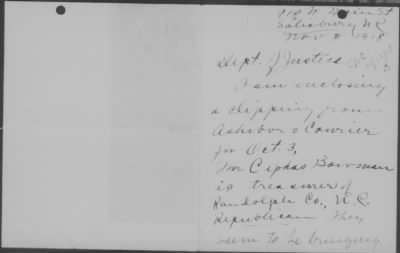 N. Main St
Salisbury N.C
Nov 8 1918
Dept. of Justice
I am enclosing
a clipping from
Ashboro Courier
for Oct. 3,
Cephas Bowman
is treasurer of
Randolph Co., N.C.
Republican They
seem to be bringing